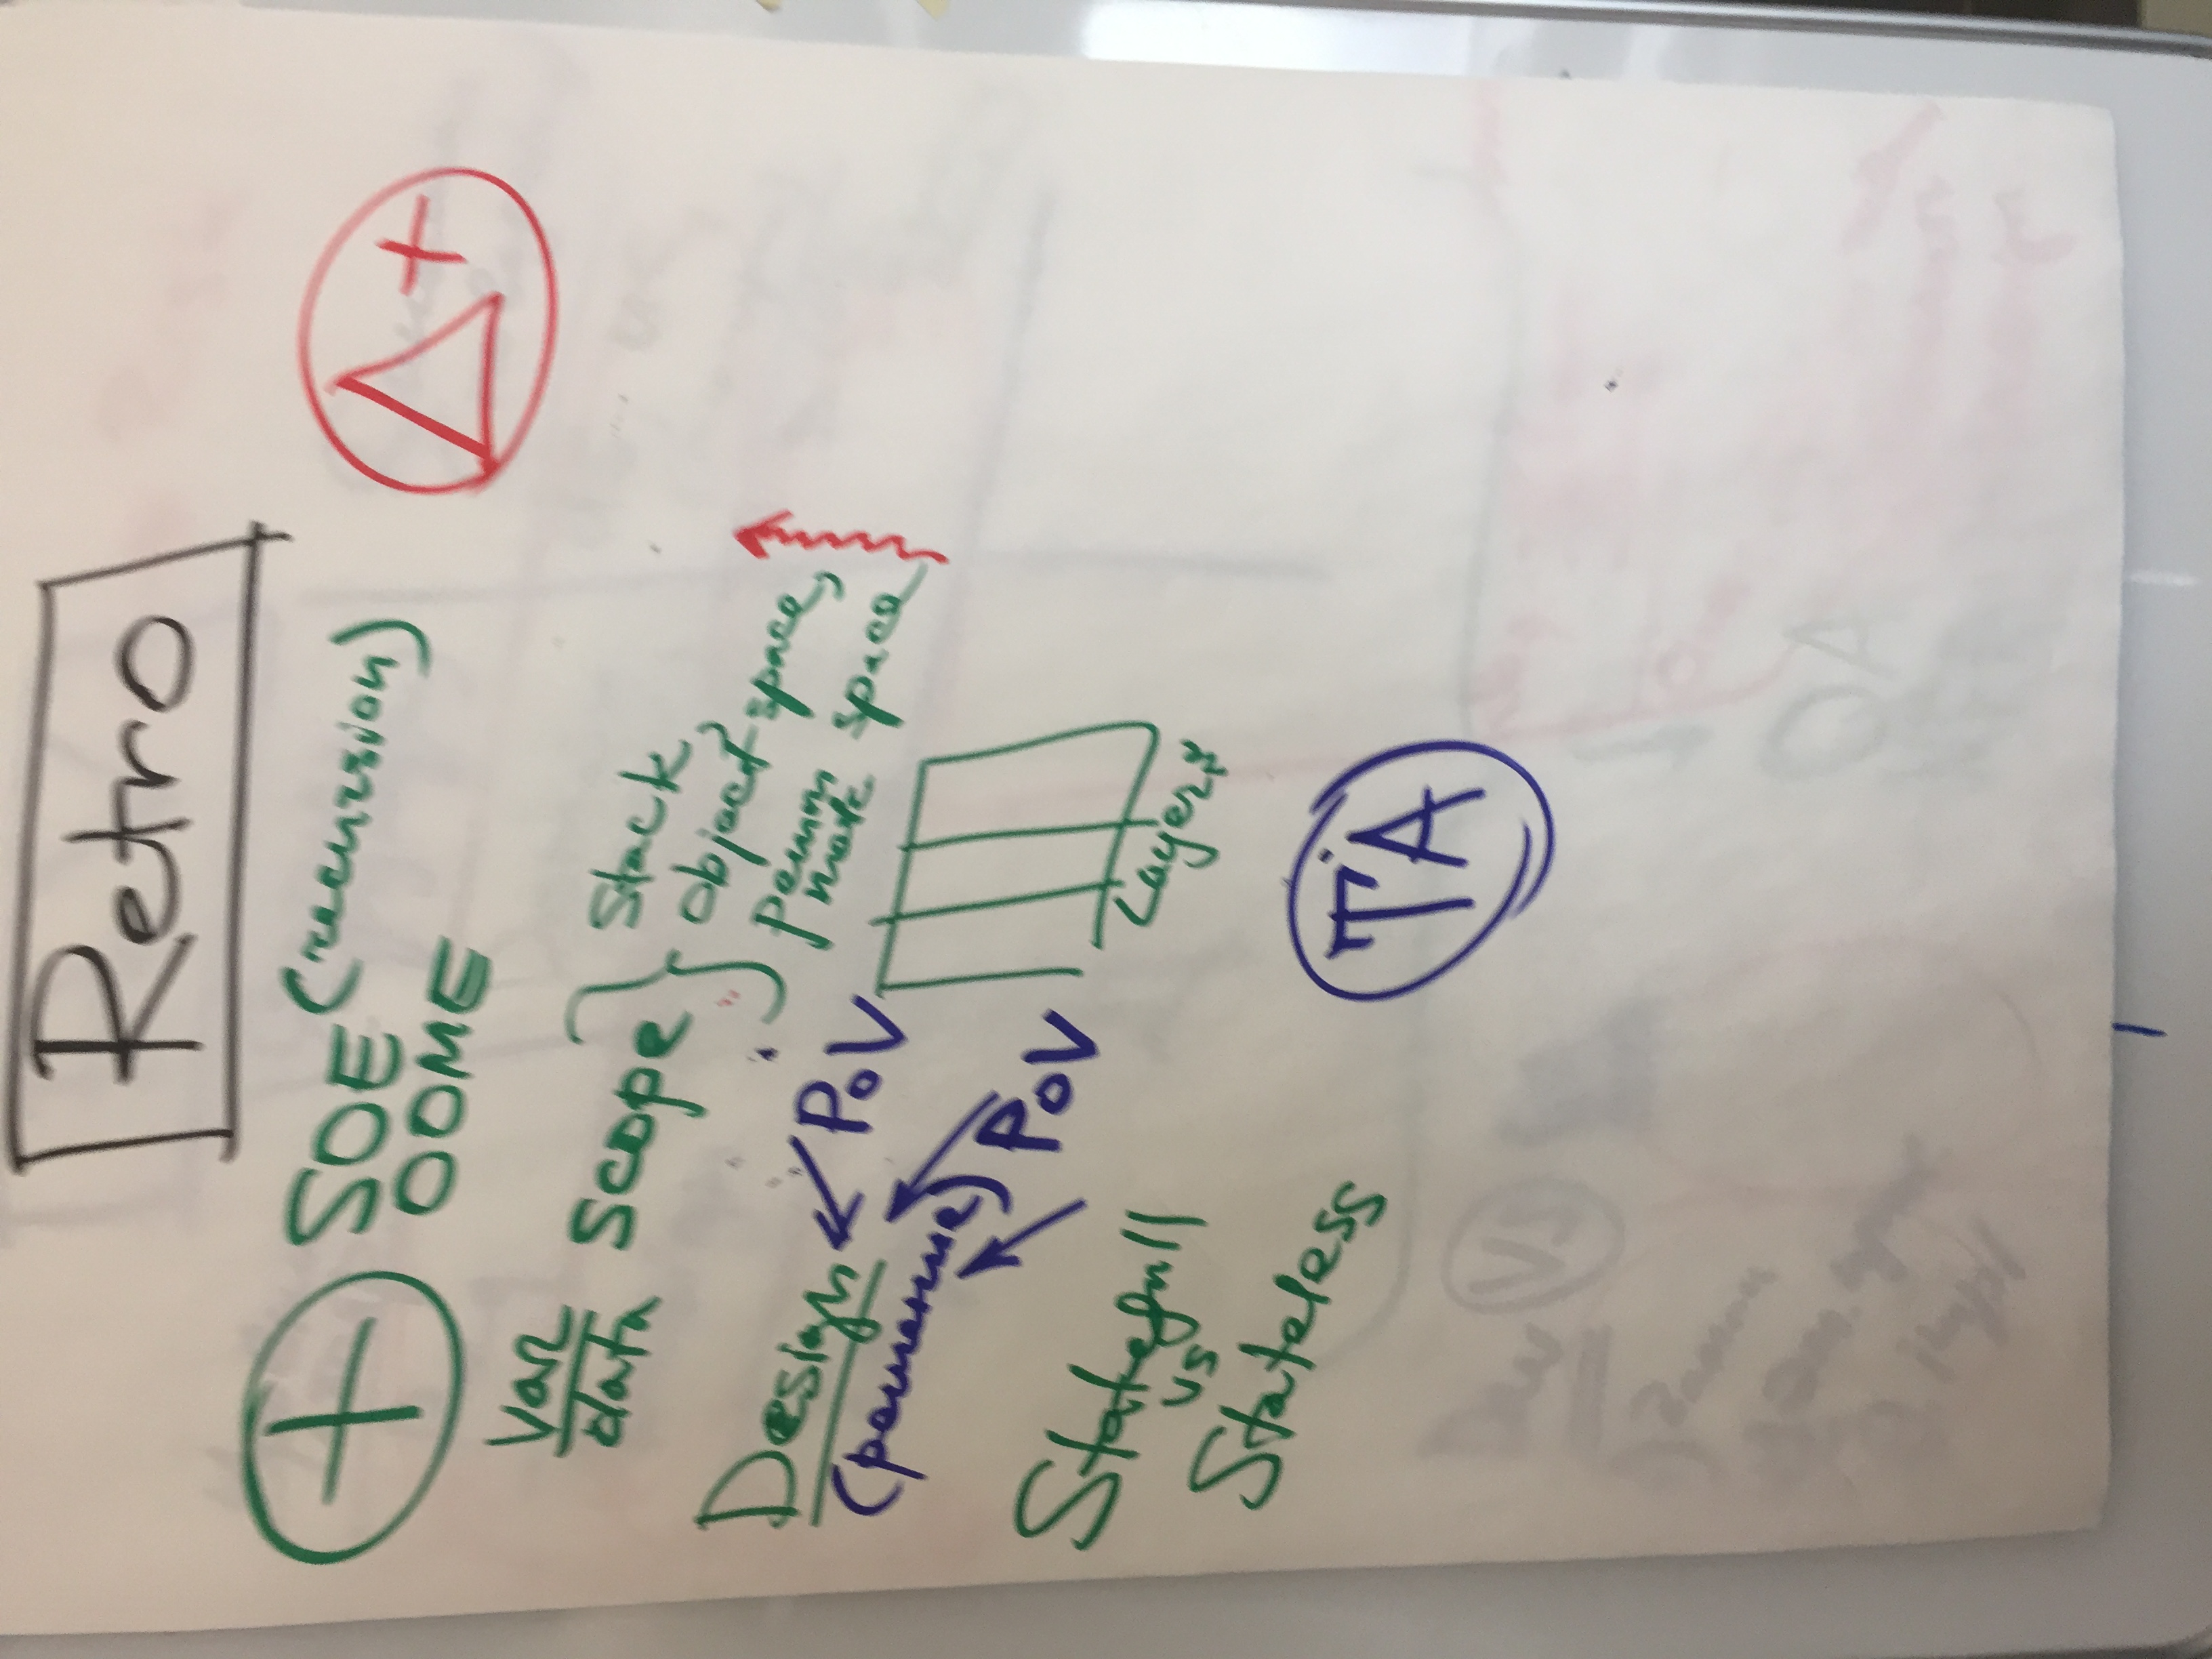 Retro
+ SOE (recursion)
OOME
Δ+
var
data scope } Stack,
Object space,
perm space
Design
(решение)
PoV
PoV
Layers
Statefull
vs
Stateless
TA